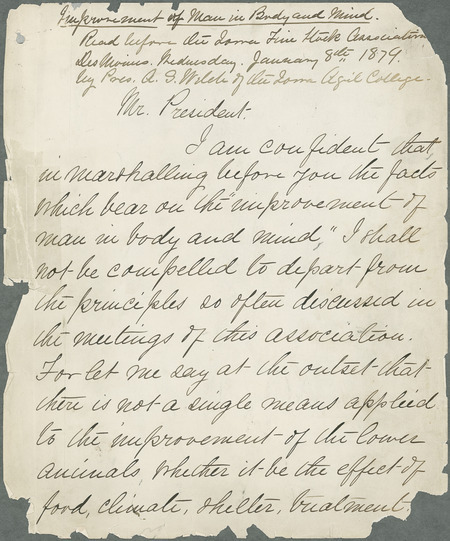 Improvement of Man in Body and Mind.
Read before the Iowa Fine Stock Association
Des Moines. Wednesday, January 8th 1879.
by Pres. A. S. Welch of the Iowa Agil College.
Mr. President.
I am confident that,
in marshalling before you the facts
which bear on the "improvement of
man in body and mind," I shall
not be compelled to depart from
the principles so often discussed in
the meetings of this association.
For let me say at the outset that
there is not a single means applied
to the improvement of the lower
animals, whether it be the effect of
food, climate, shelter, treatment,